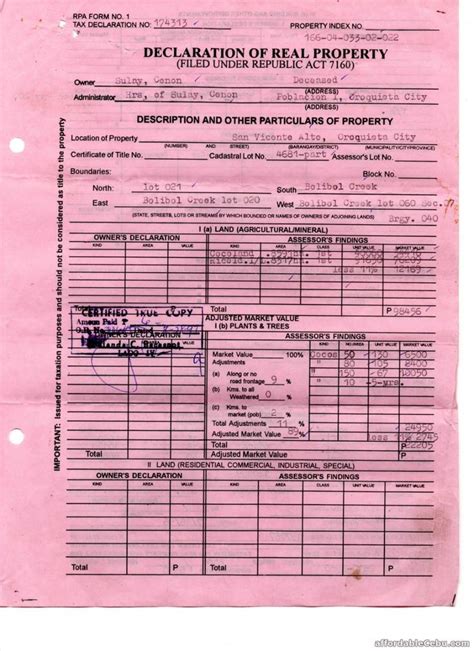 RPA FORM NO. 1
TAX DECLARATION NO: 174313
PROPERTY INDEX NO.
166-04-033-02-022
DECLARATION OF REAL PROPERTY
(FILED UNDER REPUBLIC ACT 7160)
Owner Sulay, Conon Deceased
(ADDRESS)
Administrator Hrs, of Sulay, Conon Poblacion I, Oroquieta City
(ADDRESS)
DESCRIPTION AND OTHER PARTICULARS OF PROPERTY
Location of Property San Vicente Alto, Oroquieta City
(NUMBER) AND (STREET) (BARANGAY/DISTRICT) (MUNICIPALITY/CITY/PROVINCE)
Certificate of Title No. Cadastral Lot No. 4681-part Assessor's Lot No.
Boundaries: Block No.
North: lot 021 South Bolibol Creek
East Bolibol Creek lot 020 West Bolibol Creek lot 060 Sec.
(STATE, STREETS, LOTS OR STREAMS BY WHICH BOUNDED OR NAMES OF OWNERS OF ADJOINING LANDS) Brgy. 040
I (a) LAND (AGRICULTURAL/MINERAL)
OWNER'S DECLARATION ASSESSOR'S FINDINGS
KIND AREA VALUE KIND AREA CLASS UNIT VALUE MARKET VALUE
Cocoland 1st
1st
less 11% 12169
Total Total P98456
CERTIFIED TRUE COPY
Amount Paid P
O.R. No.
ADJUSTED MARKET VALUE
I (b) PLANTS & TREES
OWNER'S DECLARATION ASSESSOR'S FINDINGS
LAOO IV
Market Value 100%
Adjustments
(a) Along no road frontage 9 %
(b) Kms. to all Weather %
(c) Kms. to market (pob) 2 %
Total Adjustments 11 %
Adjusted Market Value 89%
KIND NO./AREA UNIT VALUE MARKET VALUE
Cocos 50 130 6500
" 80 105 8400
" 150 67 10050
" 10 -5-yrs.
24950
less 11% 2745
Total Adjusted Market Value P 22205
II LAND (RESIDENTIAL COMMERCIAL, INDUSTRIAL, SPECIAL)
OWNER'S DECLARATION ASSESSOR'S FINDINGS
KIND AREA VALUE KIND AREA CLASS UNIT VALUE MARKET VALUE
Total P Total P
IMPORTANT: Issued for taxation purposes and should not be considered as title to the property
affordableCebu.com